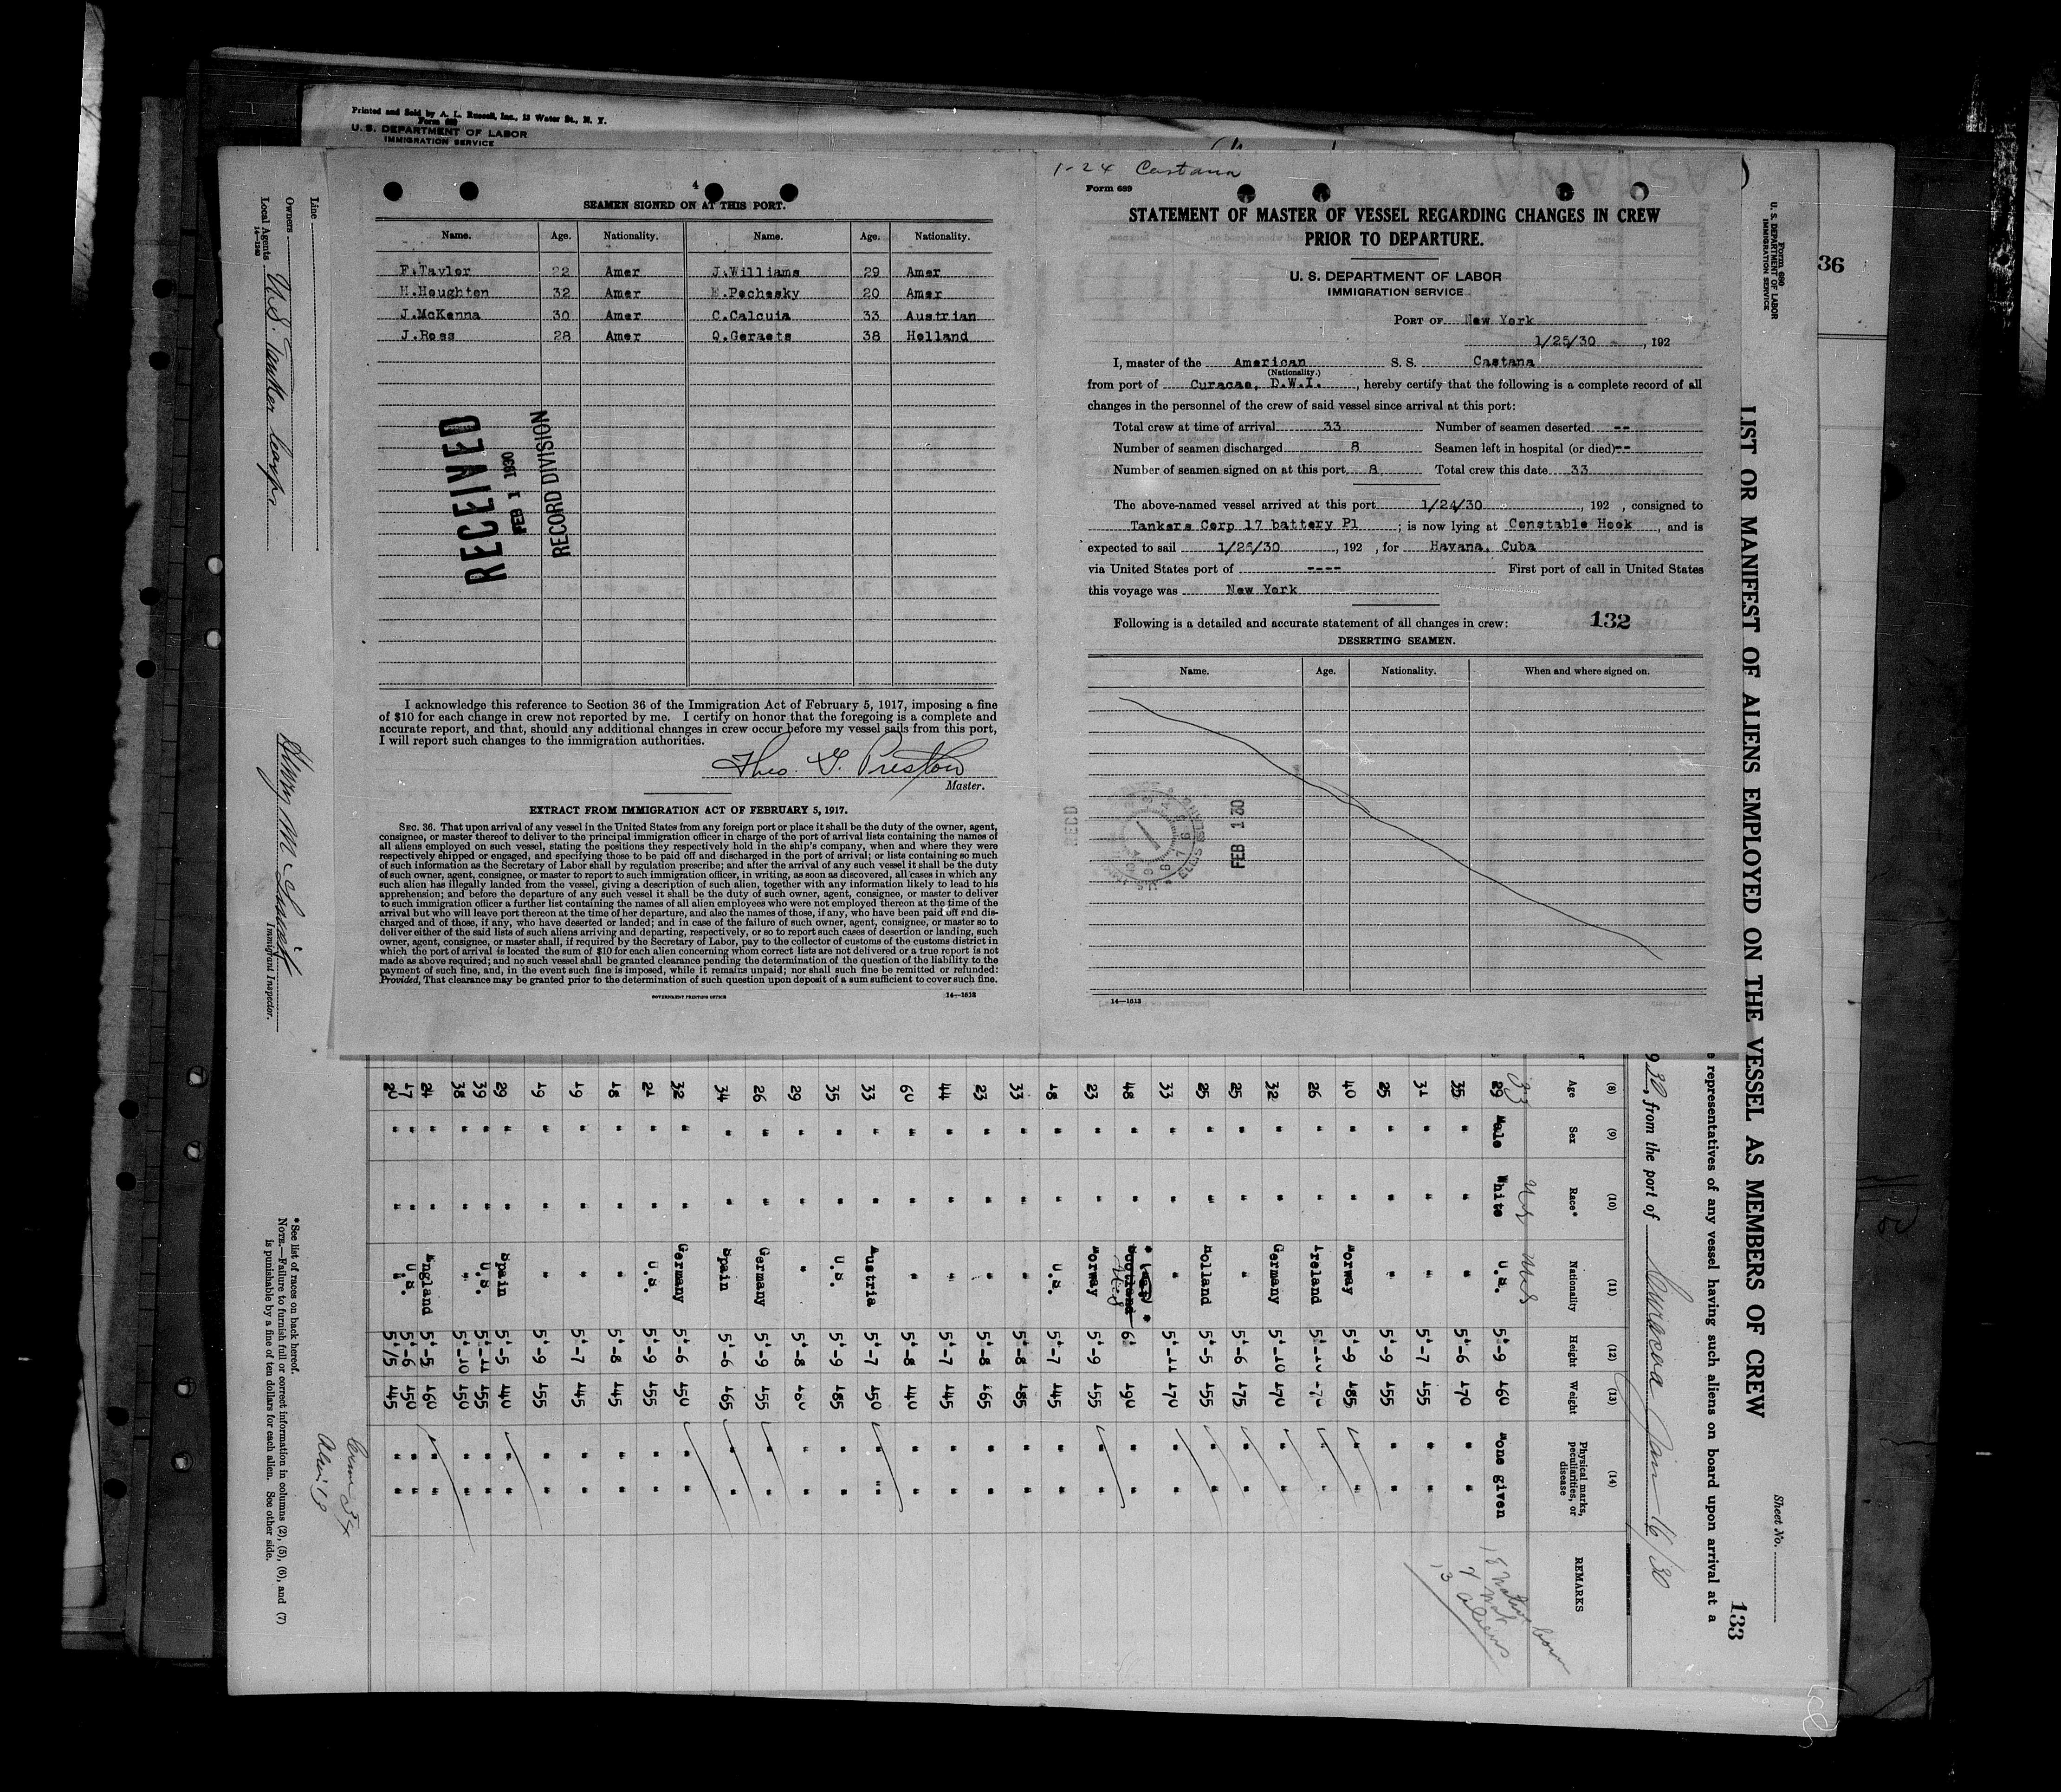 Printed and Sold by A. L. Russell, Inc., 13 Water St., N. Y.
Form 689
U. S. DEPARTMENT OF LABOR
IMMIGRATION SERVICE
4
SEAMEN SIGNED ON AT THIS PORT.
Name. Age. Nationality. Name. Age. Nationality.
F.Taylor 22 Amer J.Williams 29 Amer
H.Houghten 32 Amer E.Pechesky 20 Amer
J.McKenna 30 Amer C.Calcuia 33 Austrian
J.Ross 28 Amer Q.Geraets 38 Holland
RECEIVED
FEB 1 1930
RECORD DIVISION
I acknowledge this reference to Section 36 of the Immigration Act of February 5, 1917, imposing a fine
of $10 for each change in crew not reported by me. I certify on honor that the foregoing is a complete and
accurate report, and that, should any additional changes in crew occur before my vessel sails from this port,
I will report such changes to the immigration authorities.
Theo. G. Preston
Master.
EXTRACT FROM IMMIGRATION ACT OF FEBRUARY 5, 1917.
SEC. 36. That upon arrival of any vessel in the United States from any foreign port or place it shall be the duty of the owner, agent,
consignee, or master thereof to deliver to the principal immigration officer in charge of the port of arrival lists containing the names of
all aliens employed on such vessel, stating the positions they respectively hold in the ship's company, when and where they were
respectively shipped or engaged, and specifying those to be paid off and discharged in the port of arrival; or lists containing so much
of such information as the Secretary of Labor shall by regulation prescribe; and after the arrival of any such vessel it shall be the duty
of such owner, agent, consignee, or master to report to such immigration officer, in writing, as soon as discovered, all cases in which any
such alien has illegally landed from the vessel, giving a description of such alien, together with any information likely to lead to his
apprehension; and before the departure of any such vessel it shall be the duty of such owner, agent, consignee, or master to deliver
to such immigration officer a further list containing the names of all alien employees who were not employed thereon at the time of the
arrival but who will leave port thereon at the time of her departure, and also the names of those, if any, who have been paid off and dis-
charged and of those, if any, who have deserted or landed; and in case of the failure of such owner, agent, consignee, or master so to
deliver either of the said lists of such aliens arriving and departing, respectively, or so to report such cases of desertion or landing, such
owner, agent, consignee, or master shall, if required by the Secretary of Labor, pay to the collector of customs of the customs district in
which the port of arrival is located the sum of $10 for each alien concerning whom correct lists are not delivered or a true report is not
made as above required; and no such vessel shall be granted clearance pending the determination of the question of the liability to the
payment of such fine, and, in the event such fine is imposed, while it remains unpaid; nor shall such fine be remitted or refunded:
Provided, That clearance may be granted prior to the determination of such question upon deposit of a sum sufficient to cover such fine.
GOVERNMENT PRINTING OFFICE 14—1613
1-24 Castana
Form 689
STATEMENT OF MASTER OF VESSEL REGARDING CHANGES IN CREW
PRIOR TO DEPARTURE.
U. S. DEPARTMENT OF LABOR
IMMIGRATION SERVICE
PORT OF New York
1/25/30, 192
I, master of the American S. S. Castana
(Nationality.)
from port of Curacao, D.W.I., hereby certify that the following is a complete record of all
changes in the personnel of the crew of said vessel since arrival at this port:
Total crew at time of arrival 33 Number of seamen deserted --
Number of seamen discharged 8 Seamen left in hospital (or died) --
Number of seamen signed on at this port 8 Total crew this date 33
The above-named vessel arrived at this port 1/24/30, 192 , consigned to
Tankers Corp 17 battery Pl ; is now lying at Constable Hook, and is
expected to sail 1/26/30, 192 , for Havana, Cuba
via United States port of ---- First port of call in United States
this voyage was New York
Following is a detailed and accurate statement of all changes in crew: 132
DESERTING SEAMEN.
Name. Age. Nationality. When and where signed on.
RECD
FEB 1 30
14—1613
36
Form 680
U. S. DEPARTMENT OF LABOR
IMMIGRATION SERVICE
Sheet No.
133
LIST OR MANIFEST OF ALIENS EMPLOYED ON THE VESSEL AS MEMBERS OF CREW
representatives of any vessel having such aliens on board upon arrival at a
930, from the port of Curacoa Jan 16/30
(8) (9) (10) (11) (12) (13) (14)
Age Sex Race* Nationality Height Weight Physical marks, peculiarities, or disease REMARKS
33 US
29 Male White U.S. 5'-9 160 None given
35 " " " 5'-6 170 " "
31 " " " 5'-7 155 " "
25 " " " 5'-9 155 " "
40 " " Norway 5'-9 185 " "
26 " " Ireland 5'-10 170 " "
32 " " Germany 5'-10 170 " "
25 " " " 5'-6 175 " "
25 " " Holland 5'-5 155 " "
33 " " " 5'-11 170 " "
48 " " Scotland 6' 190 " "
23 " " Norway 5'-9 155 " "
18 " " U.S. 5'-7 145 " "
33 " " " 5'-8 185 " "
23 " " " 5'-8 165 " "
44 " " " 5'-7 145 " "
60 " " " 5'-8 140 " "
33 " " Austria 5'-7 150 " "
35 " " U.S. 5'-9 185 " "
29 " " " 5'-8 160 " "
26 " " Germany 5'-9 155 " "
34 " " Spain 5'-6 165 " "
32 " " Germany 5'-6 150 " "
21 " " U.S. 5'-9 155 " "
18 " " " 5'-8 145 " "
19 " " " 5'-7 145 " "
19 " " " 5'-9 155 " "
29 " " Spain 5'-5 140 " "
39 " " U.S. 5'-11 155 " "
38 " " " 5'-10 150 " "
24 " " England 5'-5 160 " "
17 " " U.S. 5'-6 150 " "
20 " " " 5'/5 145 " "
18 native born
13 aliens
Crew 34
*See list of races on back hereof.
NOTE.—Failure to furnish full or correct information in columns (2), (5), (6), and (7)
is punishable by a fine of ten dollars for each alien. See other side.
Line
Owners
Local Agents U.S. Tanker
14—1240
Immigrant Inspector.